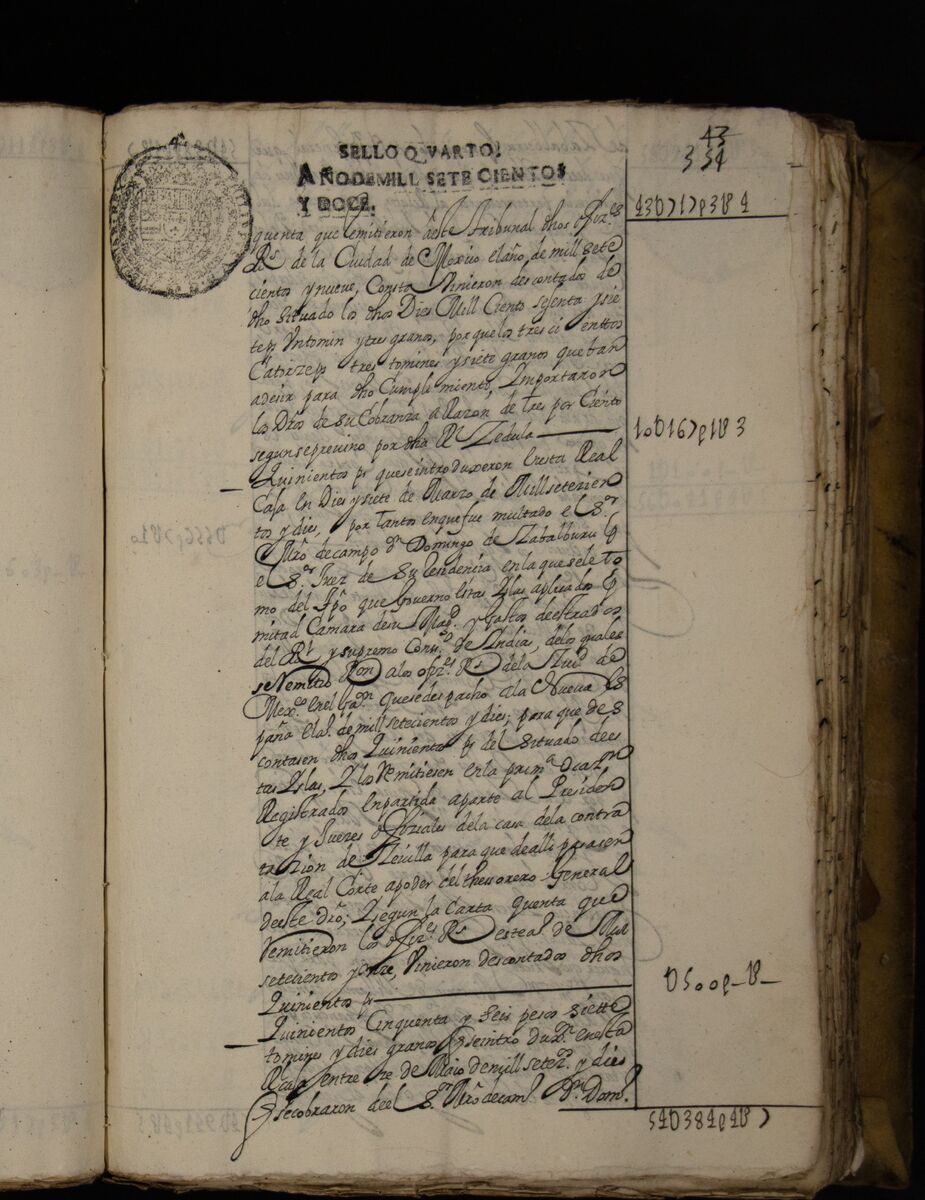 43
334
SELLO QVARTO,
AÑO DE MILL SETECIENTOS
Y DOCE.
43U717p3U4
quenta que remitieron a este Tribunal dhos ofizes
Rs de la Ciudad de Mexico el año de mill sete
cientos y nueve, Consta Vinieron descontados de
dho Situado los dhos Dies Mill Ciento sesenta y sie
te ps Untomin y tres granos, porque los trescienttos
Catorze ps tres tomines y siete granos que ban
a decir para dho Cumplimiento, Importaron
los Dros de su Cobranza a Razon de tres por Ciento
segun se previno por dha Rl Zedula
10U167p1U3
Quinientos ps que se introduxeron en esta Real
Caja en Dies y siete de Marzo de Mill setezien
tos y dies, por tantos en que fue multado el Sor
Mro de campo Dn Domingo de Zabalburu
el Sor Juez de Su Residencia en la que se le to
mo del tpo que Governo estas Yslas aplicados
mitad Camara de su Magd y Gastos de estrados
del Rl y supremo Conso de India, de los quales
se Remitio Razon a los ofizes Rs de la Ciud de
Mexco en el que se despacho a la Nueva Es
paña el ao de mill setecientos y dies; para que des
contasen dhos Quinientos ps del Situado de es
tas Yslas, Y los Remitiesen en la prima ocazn
Registrados en partida aparte al Presiden
te y Juezes ofiziales de la casa de la contra
tazion de Sevilla para que de alli pasasen
a la Real Corte a poder del thessorero General
de este Dro; Y segun la Carta quenta que
Remitieron los ofizes Rs este al de Mill
setecientos y onze, Vinieron descontados dhos
Quinientos ps
U500p_U_
Quinientos Cinquenta y Seis pesos siette
tomines y dies granos se introduxn en esta
Rl Caja en tre de Maio de mill setezs y dies
se cobraron de el Sor Mro de camp Dn Domo
54U384p4U7